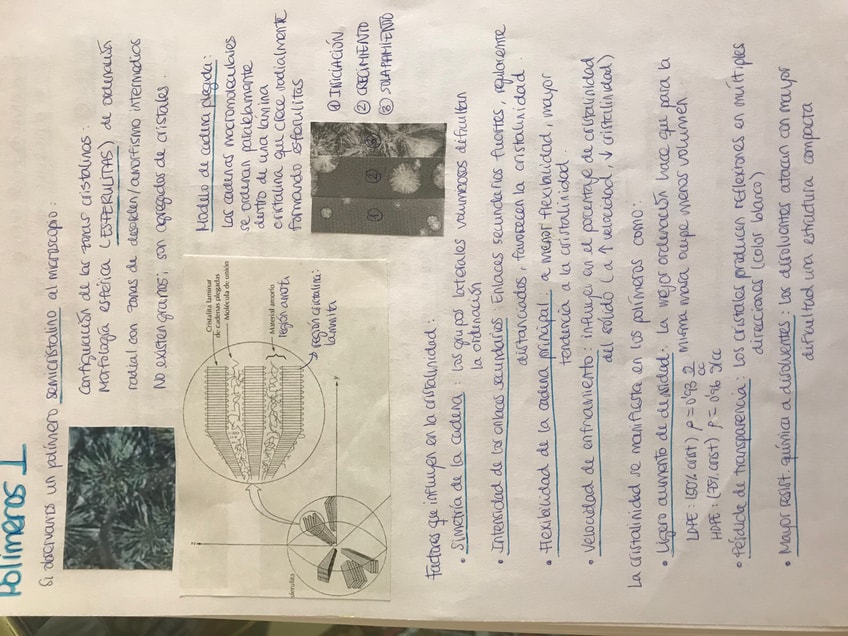 Polímeros I
Si observamos un polímero semicristalino al microscopio:
Configuración de las zonas cristalinas:
Morfología esférica (ESFERULITAS) de ordenación
radial con zonas de desorden/amorfismo intermedios
No existen granos; son agregados de cristales.
Cristalita laminar
de cadenas plegadas
Molécula de unión
Material amorfo
región amorf.
región cristalina:
lamelita
z
y
sferulita
Modelo de cadena plegada:
Las cadenas macromoleculares
se ordenan paralelamente
dentro de una lámina
cristalina que crece radialmente
formando esferulitas
① ② ③
① INICIACIÓN
② CRECIMIENTO
③ SOLAPAMIENTO
Factores que influyen en la cristalinidad:
• Simetría de la cadena: los grupos laterales voluminosos dificultan
la ordenación
• Intensidad de los enlaces secundarios: Enlaces secundarios fuertes, regularmente
distanciados, favorecen la cristalinidad.
• Flexibilidad de la cadena principal: a menor flexibilidad, mayor
tendencia a la cristalinidad.
• Velocidad de enfriamiento: influye en el porcentaje de cristalinidad
del sólido (a ↑ velocidad, ↓ cristalinidad)
La cristalinidad se manifiesta en los polímeros como:
• Ligero aumento de densidad: la mejor ordenación hace que para la
misma masa ocupe menos volumen.
LDPE: (50% crist) ρ = 0'93 g/cc
HDPE: (75% crist) ρ = 0'96 g/cc
• Pérdida de transparencia: los cristales producen reflexiones en múltiples
direcciones (color blanco)
• Mayor resist. química a disolventes: los disolventes atacan con mayor
dificultad una estructura compacta